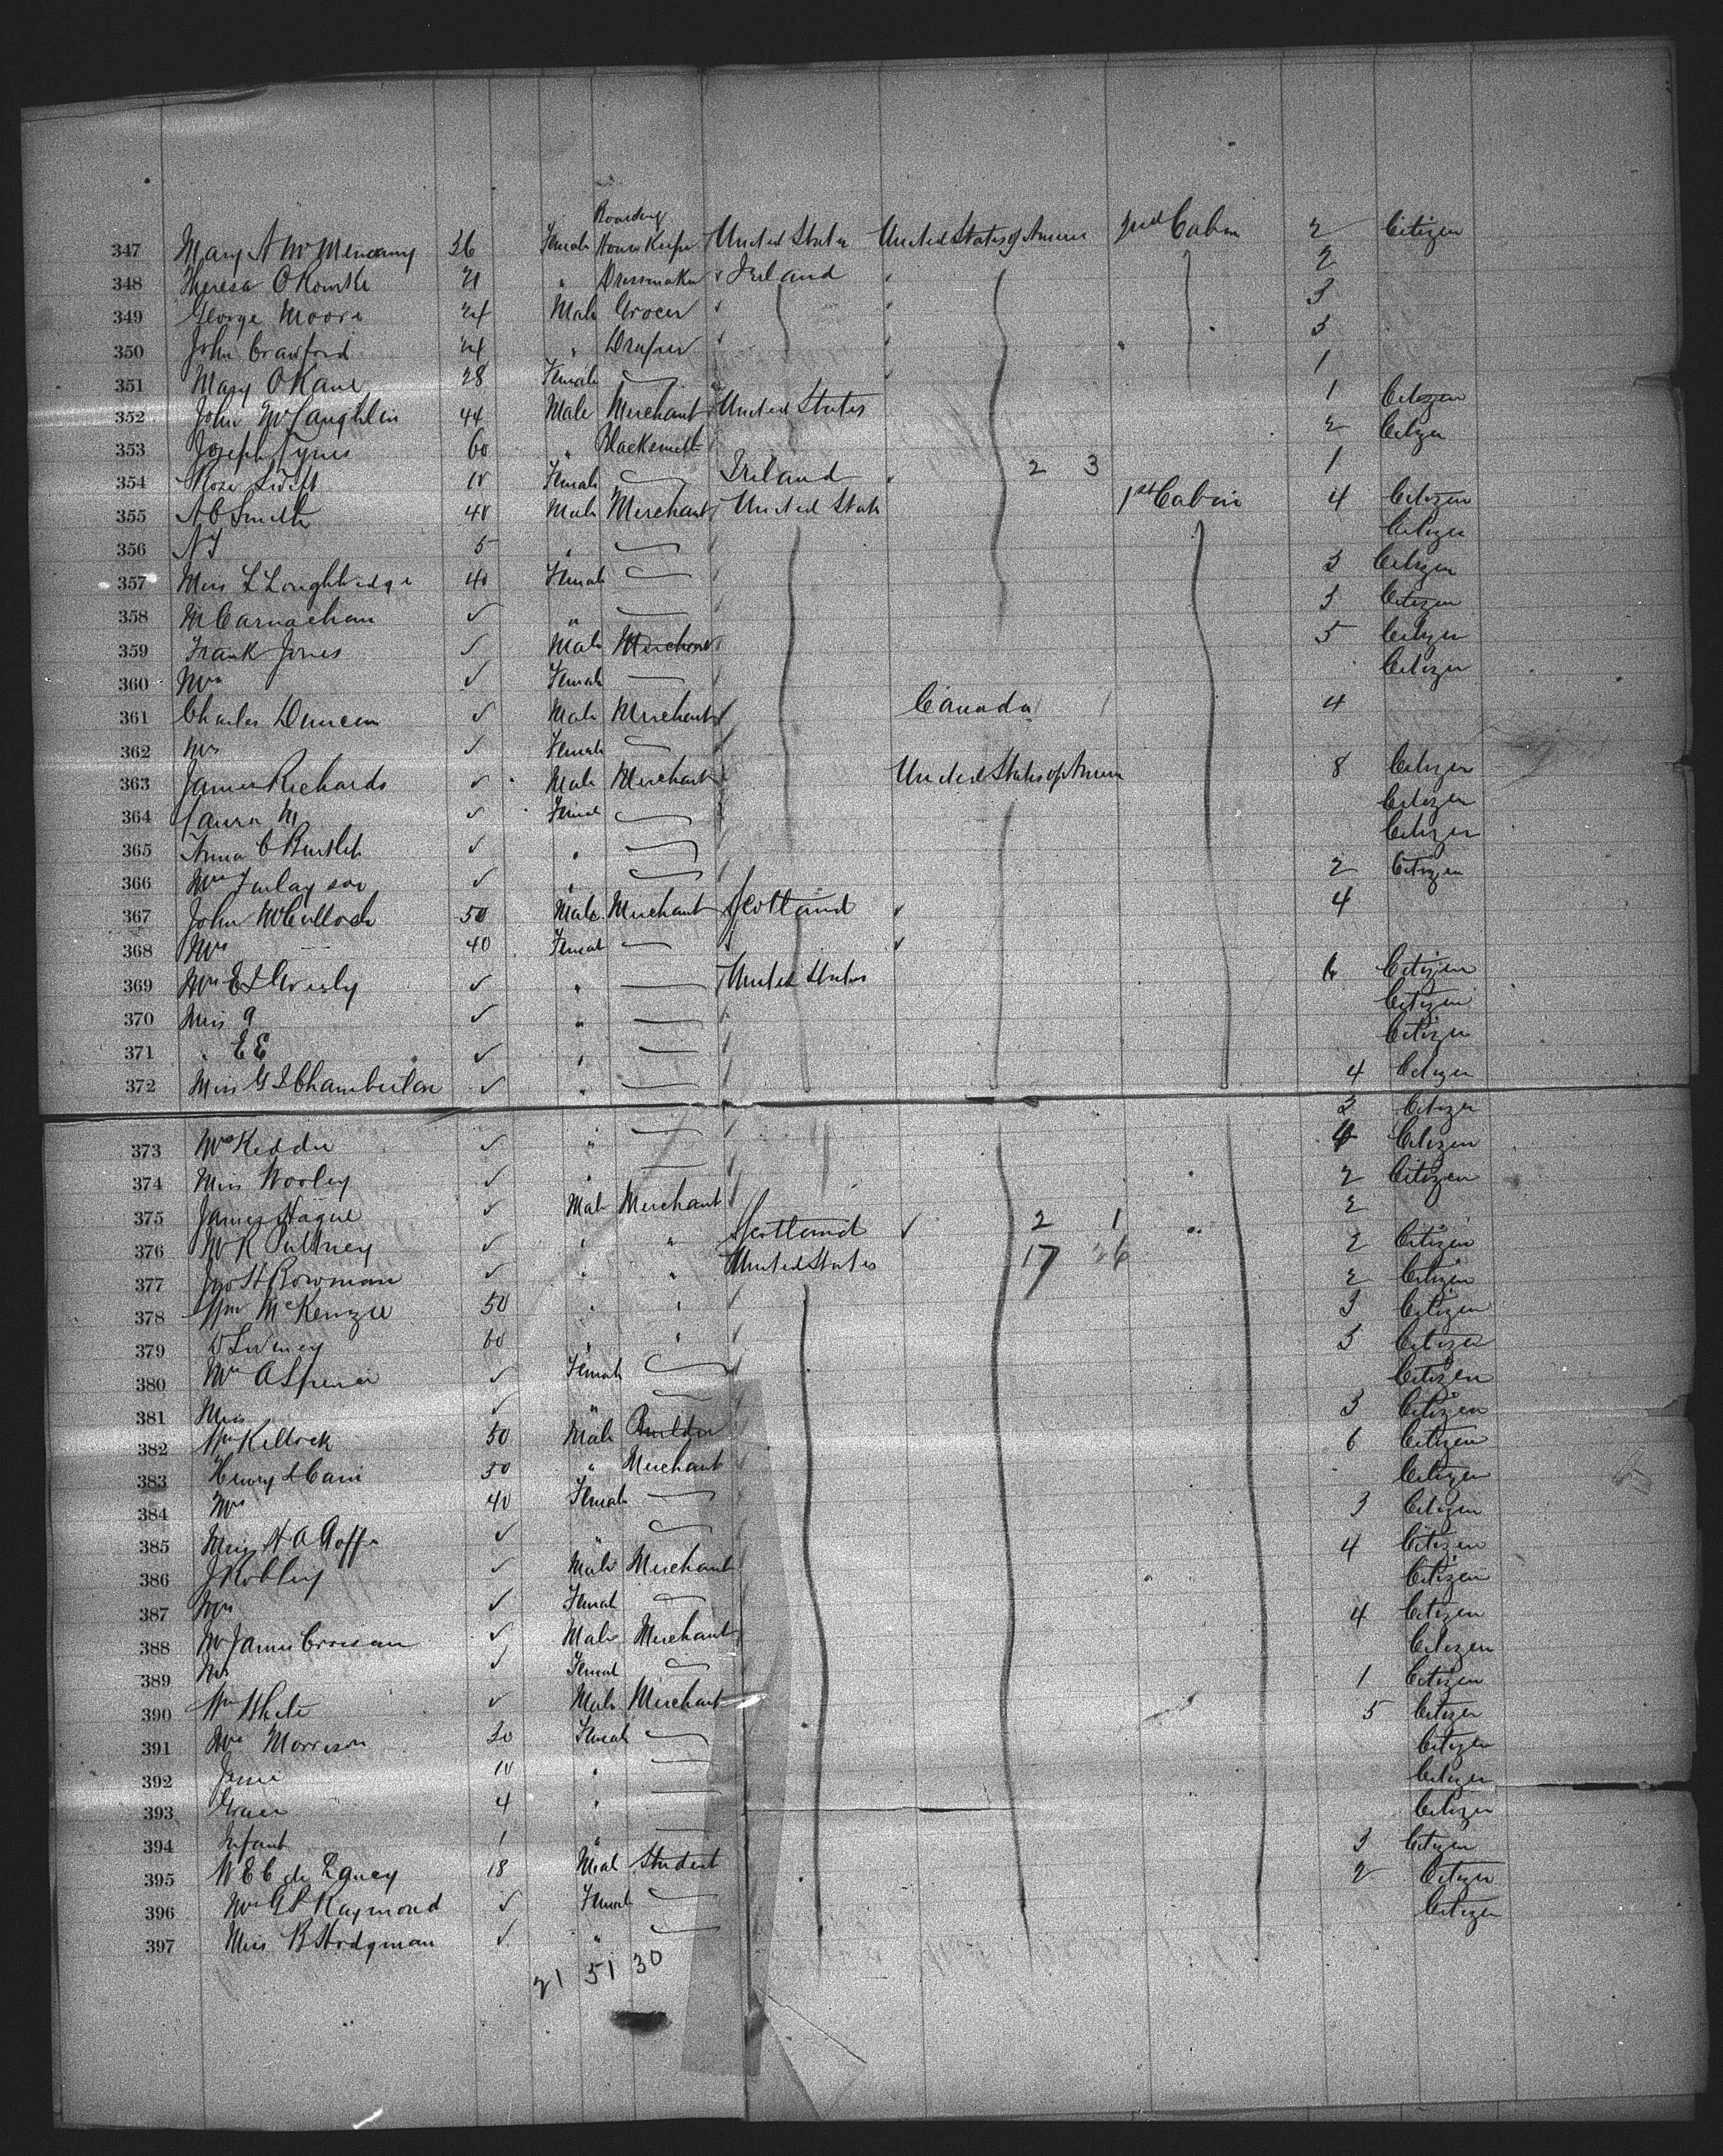 Boarding
347 Mary A McMenamy 36 Female House Keeper United States United States of America 2nd Cabin 2 Citizen
348 Theresa O Rourke 21 " Dressmaker Ireland 2
349 George Moore 24 Male Grocer 3
350 John Crawford 24 " Draper 3
351 Mary O Kane 28 Female 1
352 John McLaughlin 44 Male Merchant United States 1 Citizen
353 Joseph 60 " Blacksmith 2 Citizen
354 Rose Swift Female Ireland 2 3 1
355 A C Smith 40 Male Merchant United States 1st Cabin 4 Citizen
356 5 " Citizen
357 Miss L Loughbridge 40 Female 3 Citizen
358 M Carnachan ✓ " 3 Citizen
359 Frank Jones ✓ Male Merchant 5 Citizen
360 Mrs ✓ Female Citizen
361 Charles Duncan ✓ Male Merchant Canada 1 4
362 Mrs ✓ Female
363 James Richards ✓ Male Merchant United States of Amer 8 Citizen
364 Laura M ✓ Female Citizen
365 Anna C Bartlett ✓ " Citizen
366 Mrs Finlayson ✓ " 2 Citizen
367 John McCulloch 50 Male Merchant Scotland ✓ 4
368 Mrs 40 Female ✓
369 Mrs E L ✓ " United States 6 Citizen
370 Miss ✓ " Citizen
371 " E E ✓ " Citizen
372 Miss G S Chamberlain ✓ " 4 Citizen
373 Mrs Kiddie ✓ " 3 Citizen
374 Miss Wooley ✓ " 4 Citizen
375 James Hague ✓ Male Merchant 2 Citizen
376 W K Pultney ✓ " " Scotland ✓ 2 1 2
377 Jno H Bowman ✓ " " United States 17 36 2 Citizen
378 Wm McKenzie 50 " " 2 Citizen
379 60 " " 3 Citizen
380 Mrs A Spencer ✓ Female 3 Citizen
381 Miss ✓ " Citizen
382 Wm Kellock 50 Male Builder 3 Citizen
383 Henry L Cain 50 " Merchant 6 Citizen
384 Mrs 40 Female Citizen
385 Miss H A Goff ✓ " 3 Citizen
386 J Robley ✓ Male Merchant 4 Citizen
387 Mrs ✓ Female Citizen
388 Mr James ✓ Male Merchant 4 Citizen
389 Mrs ✓ Female Citizen
390 Wm White ✓ Male Merchant 1 Citizen
391 Mrs Morrison 30 Female 5 Citizen
392 Jessie 10 " Citizen
393 Grace 4 " Citizen
394 Infant 1 " Citizen
395 W E C de Lancy 18 Male Student 3 Citizen
396 Mrs G P Raymond ✓ Female 2 Citizen
397 Miss B Hodgman ✓ " Citizen
21 51 30